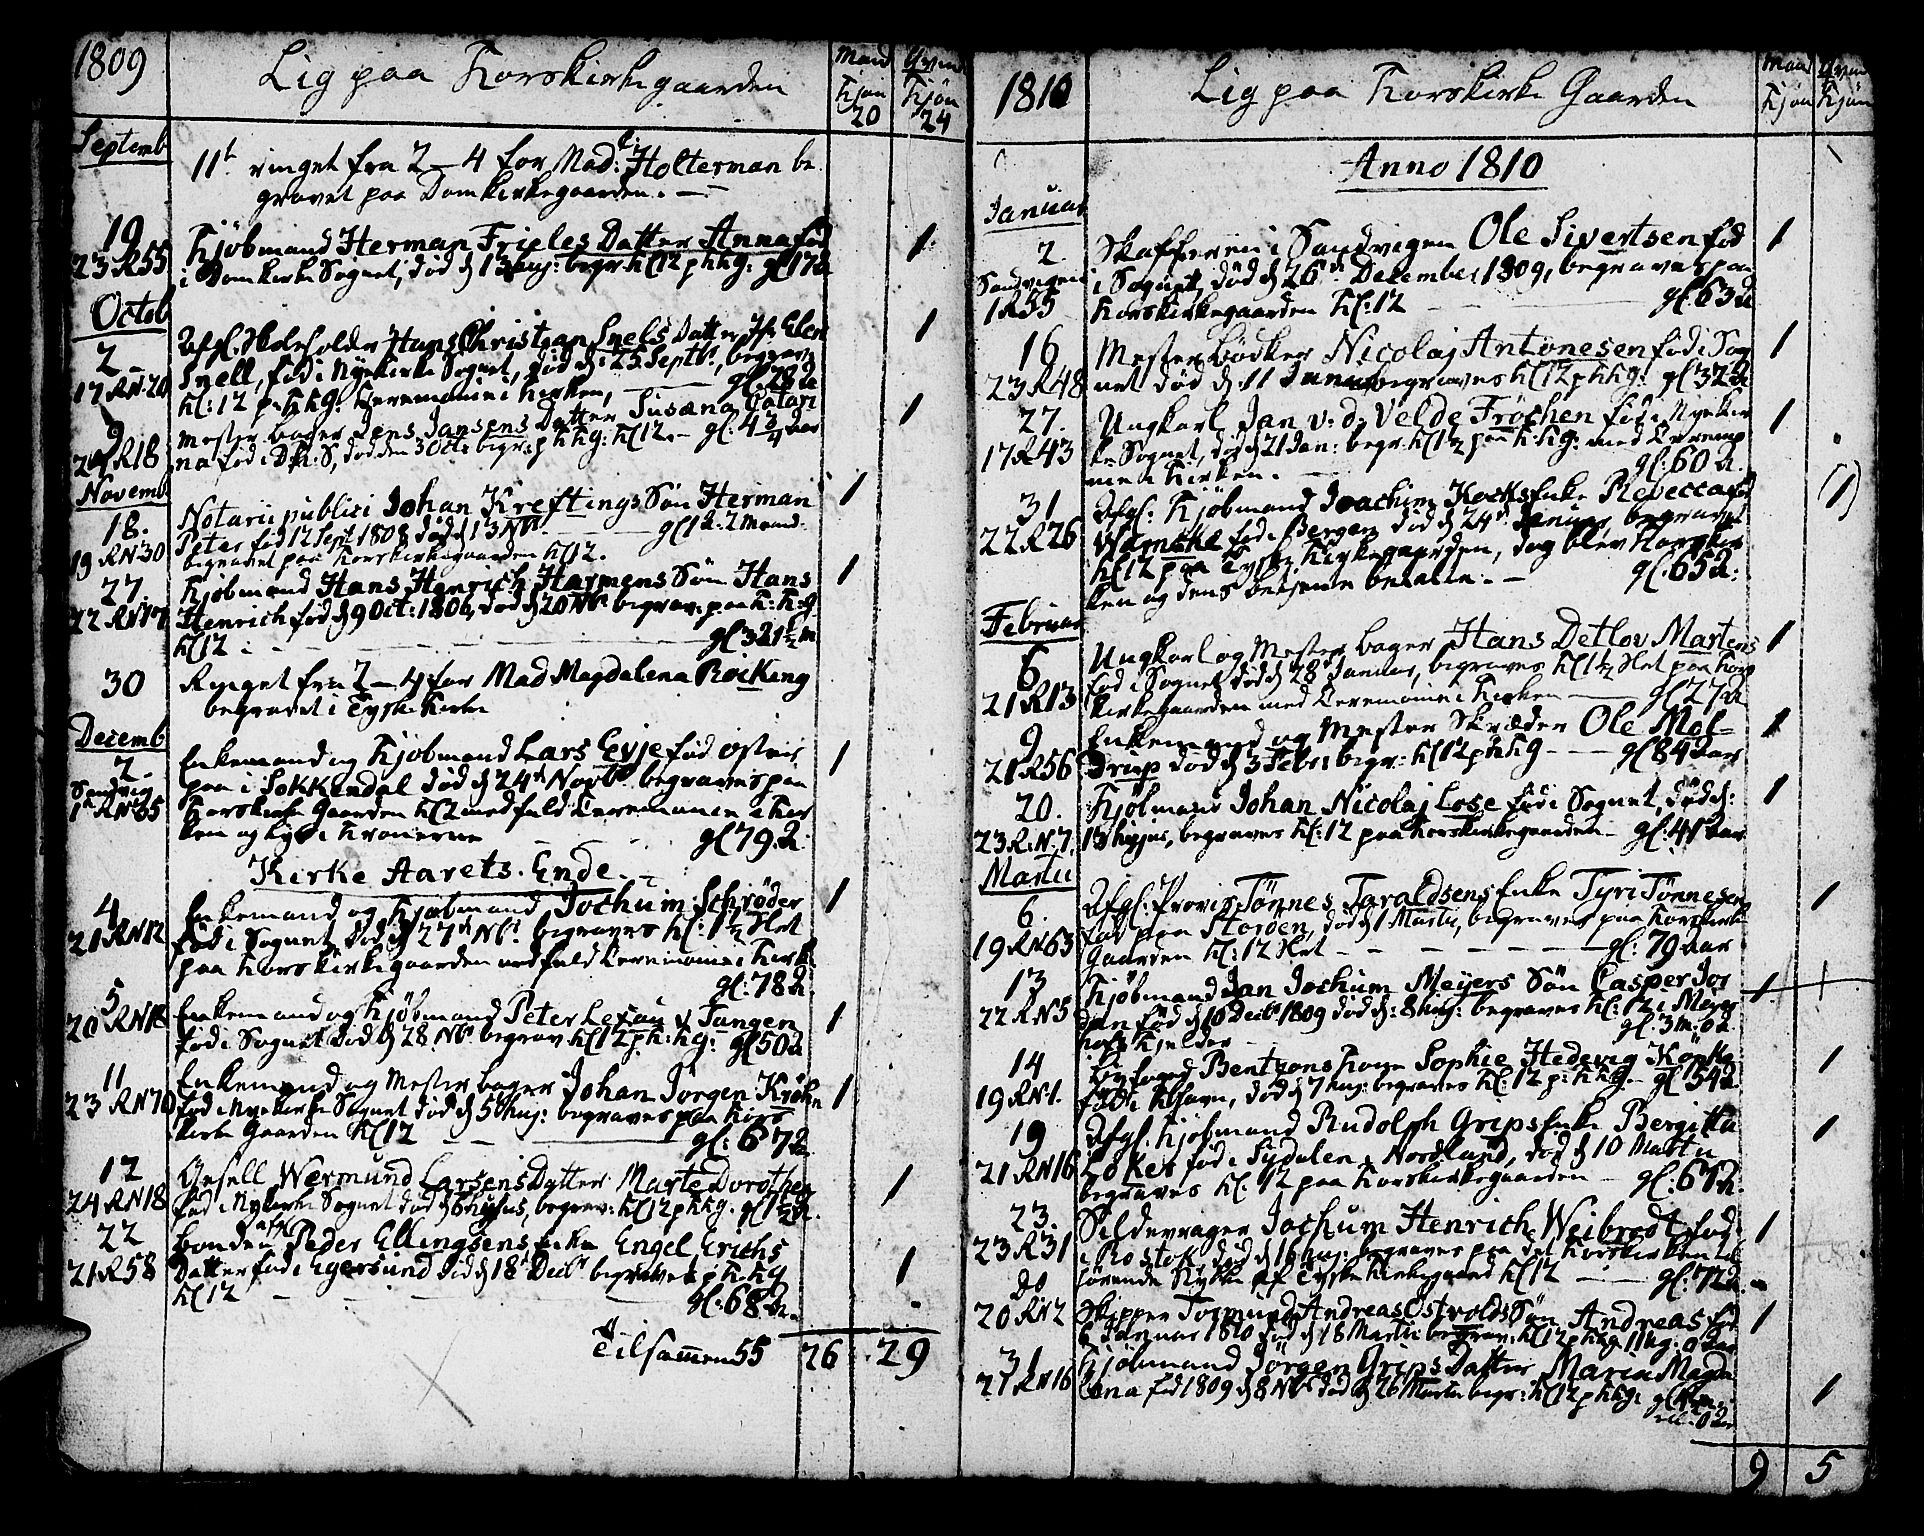 1809
Lig paa Korskirkegaarden
Mand Kjøn 20
Qvind Kjøn 24
Septemb
11t ringet fra 2–4 for Mad: Holterman be
gravet paa Domkirkegaarden. —
19
23 R 55
Kjøbmand Herman Frieles Datter Anna fød
i Domkirke Sognet, død d 13 huj: begr. Kl 12 p K kg: gl 17 a
Octob
2
17 RN: 20
Afgl. Hans Christian Snels Datter Jfr Eben
Snell, fød i Nyekirke Sognet, død d: 25 Septbr, begrav
Kl: 12 p. K kg. Ceremonie i Kirken, — gl: 28 a
9
24 R 18
Mester bager Jens Jansens Datter Susana Catari
na fød i D:K:S, død den 3 Octb begr: p K kg: Kl 12. – gl: 4 3/4 aar
Novemb
18.
19 RN 30
Notarii publici Johan Kreftings Søn Herman
Peter fød 12 Sept 1808 død d 13 Nbr — gl 1 a. 2 Maand.
begravet paa Korskirkegaarden Kl 12.
27.
22 RN 17
Kjøbmand Hans Henrich Harmens Søn Hans
Henrich fød d 9 Oct: 1806, død d 20 Nbr begrav: paa K: K: g
Kl 12 : — gl 3 a 1 1/2 m
30
Ringet fra 2–4 for Mad Magdalena Rocking
begravet i Tyske Kirke
Decemb
2.
Sandvig
1 RN 65
Enkemand og Kjøbmand Lars Evje fød
paa i Sokkendal død d 24d Novbr begraves paa
Korskirke Gaarden Kl 2 med fuld Ceremonie i Kir
ken og Lys i Kronerne gl 79. a.
Kirke Aarets. Ende. —
4
21 RN 12
Enkemand og Kjøbmand Jochum Schrøder
fød i Sognet, død d 27d Nbr begraves Kl: 1 1/2 Slet
paa Korskirkegaarden med fuld Ceremonie i Kirk
gl: 78 a.
5
20 RN 18
Enkemand og Kjøbmand Peter Lexau v Tangen
fød i Sognet død d 28 Nbr begrav Kl 12 p: K: kg: gl 50 a
11
23 RN 70
Enkemand og Mester bager Johan Jørgen Krøhn
fød i Nyekirke Sognet død d 5 huj: begraves paa Kors
kirke Gaarden Kl 12 — gl: 67 a
12
24 RN 18
Gesell Wermund Larsens Datter Marte Dorothea
fød i Nykirke Sognet død d 6 hujus, begrav: Kl 12 p K kg. gl 1 1/2 a.
22
21 R 58
Bonden afgl Peder Ellingsens Enke Engel Erichs
Datter fød i Egersund død d 18d Decbr begravet p K: kg
Kl 12 — gl: 68 a.
Tilsammen 55 26 29
1810
Lig paa Korskirke Gaarden
Mand Kjøn
Qvind Kjøn
Anno 1810
Januar
2
Sandvigen
1 R 55
Skafferen i Sandvigen Ole Sivertsen fød
i Sognet, død d 26d December 1809, begraves paa
Korskirkegaarden Kl: 12 — gl 63 a
16
23 R 48
Mester Bødker Nicolaj Antonesen fød i Sog
net død d: 11 Januar begraves Kl 12 p K kg: gl 32 a
27.
17 R 43
Ungkarl Jan v: d: Velde Frøchen fød i Nyekir
ke Sognet, død d 21 Jan: begr: Kl 12 paa K: kg: med Ceremo
nie i Kirken. — gl: 60 a.
31
22 R 26
Afgl: Kjøbmand Joachim Kocks Enke Rebecca fød
Warncke fød i Bergen død d 24d Januar, begravet
Kl 12 paa Tyske Kirkegaarden, dog blev Korskir
ken og dens betjente betalte. — gl 65 a:
Februar
6
21 R 13
Ungkarl og Mester bager Hans Detlov Martens
fød i Sognet død d 28 Januar, begraves Kl 1 1/2 Slet paa Kors
kirkegaarden med Ceremonie i Kirken — gl 27 a
9
21 R 56
Enkemand og Mester Skræder Ole Mol-
drup død d 3 Febr: begr: Kl 12 p K kg - gl 84 aar
20.
23 R: N: 7.
Kjøbmand Johan Nicolaj Lose fød i Sognet, død d:
13 hujus, begraves Kl: 12 paa Korskirkegaarden – gl: 41 aar
Martii
6.
19 RN 63
Afgl: Provis Tønnes Taraldsens Enke Tyri Tønnesen
fød paa Storden, død d 1 Martii, begraves paa Korskirke
Gaarden Kl: 12 Slet — gl: 79 aar
13
22 RN 5
Kjøbmand Jan Jochum Meyers Søn Casper Jor
dan fød d 16 Decbr 1809 død d: 8 huj: begraves Kl: 12 i Meyer
hofs Kjelder — gl: 3 m: 0 a.
14
19 RN 1.
Bentzons Kone Sophie Hedevig Køpke
fød i Khavn, død d 7 huj: begraves Kl: 12 p: K kg – gl 54 a
19
21 RN 16
Afgl. Kjøbmand Rudolph Grips Enke Bergitta
Loker fød i Sydalen i Nordland, død d 10 Martii
begraves Kl: 12 paa Korskirkegaarden – gl: 61 a.
23.
23 R 31
Sildevrager Jochum Henrich Weibrodt fød
i Rostok, død d 16 huj: begraves paa det Korskirken til
hørende Stykke af Tyske Kirkegaard Kl 12 — gl: 72 a.
do
20 RN 2
Skipper Tormund Andreas Ostvolds Søn Andreas fød
6 Januar 1810 død d 18 Martii begrav: Kl 12 p K kg 11 Ug: 0 aar
31
21 RN 16
Kjøbmand Jørgen Grips Datter Maria Magda
lena fød 1809 d 8 Nbr død d 26 Martii begr: Kl 12 p K kg gl 4 1/2 m:
9 5